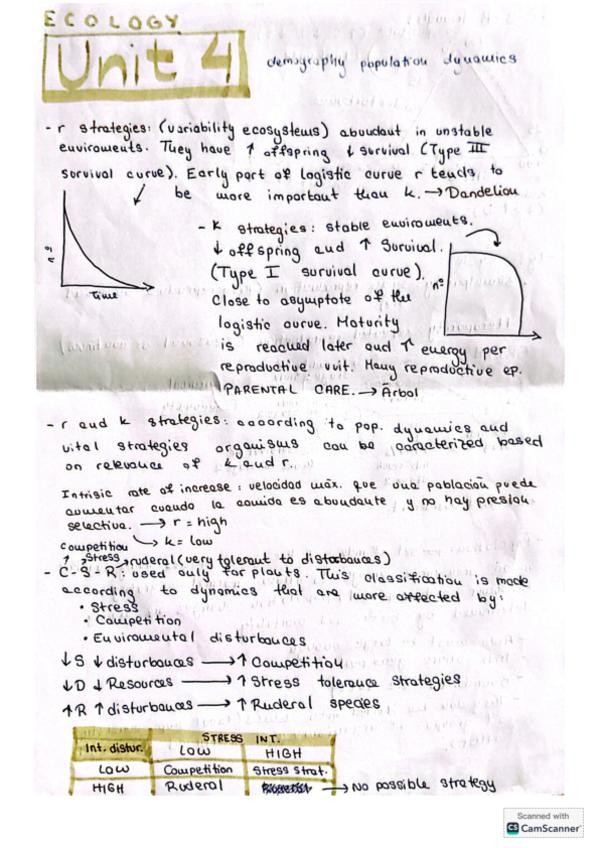 ECOLOGY
Unit 4
demography population dynamics
- r strategies: (variability ecosystems) aboudant in unstable
euviroments. They have ↑ offspring ↓ survival (Type III
survival curve). Early part of logistic curve r tends to
be more important than k. → Dandelion
nº
Time
- k strategies: stable euviroments.
↓ offspring and ↑ Survival.
(Type I survival curve).
nº
Close to asymptote of the
logistic curve. Maturity
is reached later and ↑ euergy per
reproductive uuit. Many reproductive ep.
PARENTAL CARE. → Árbol
- r and k strategies: according to pop. dynamics and
vital strategies organisms can be caracterized based
on relevance of k and r.
Intrisic rate of increase: velocidad máx. que una población puede
aumentar cuando la comida es abundante y no hay presión
selectiva. → r = high
→ k = low
Competition
↑ Stress ruderal (very tolerant to distorbances)
- C-S-R: used only for plants. This classification is made
according to dynamics that are more affected by:
• Stress
• Competition
• Euviromental disturbances
↓S ↓ disturbances → ↑ Competition
↓D ↓ Resources → ↑ Stress tolerance strategies
↑R ↑ disturbances → ↑ Ruderal species
STRESS INT.
Int. distur. LOW HIGH
LOW Competition Stress Strat.
HIGH Ruderal → No possible strategy
Scanned with
CS CamScanner